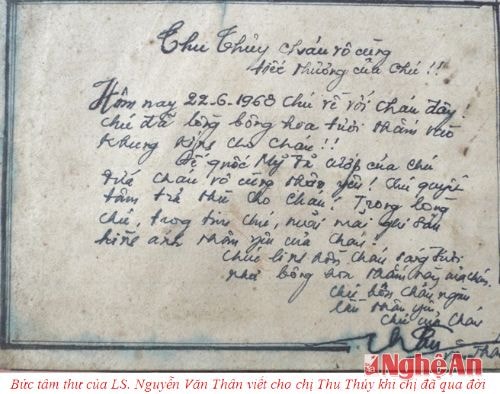 Thu Thủy cháu vô cùng
tiếc thương của chú !!
Hôm nay 22.6.1968 chú về với cháu đây !
chú đã lồng bông hoa tươi thắm vào
khung kính cho cháu !!
Đế quốc Mỹ đã cướp của chú
đứa cháu vô cùng thân yêu ! Chú quyết
tâm trả thù cho cháu ! Trong lòng
chú, trong tim chú, mãi ghi sâu
hình ảnh thân yêu của cháu !
Chúc linh hồn cháu sáng tươi
như bông hoa thắm này
chú hôn cháu ngàn
lần thân yêu
chú của cháu
Thân
NghệAn
Bức tâm thư của LS. Nguyễn Văn Thân viết cho chị Thu Thủy khi chị đã qua đời